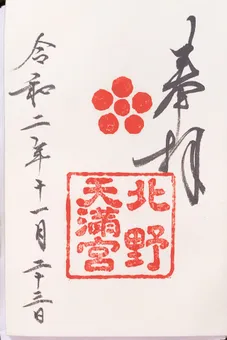 奉拝
北野
天満宮
令和二年十一月二十三日